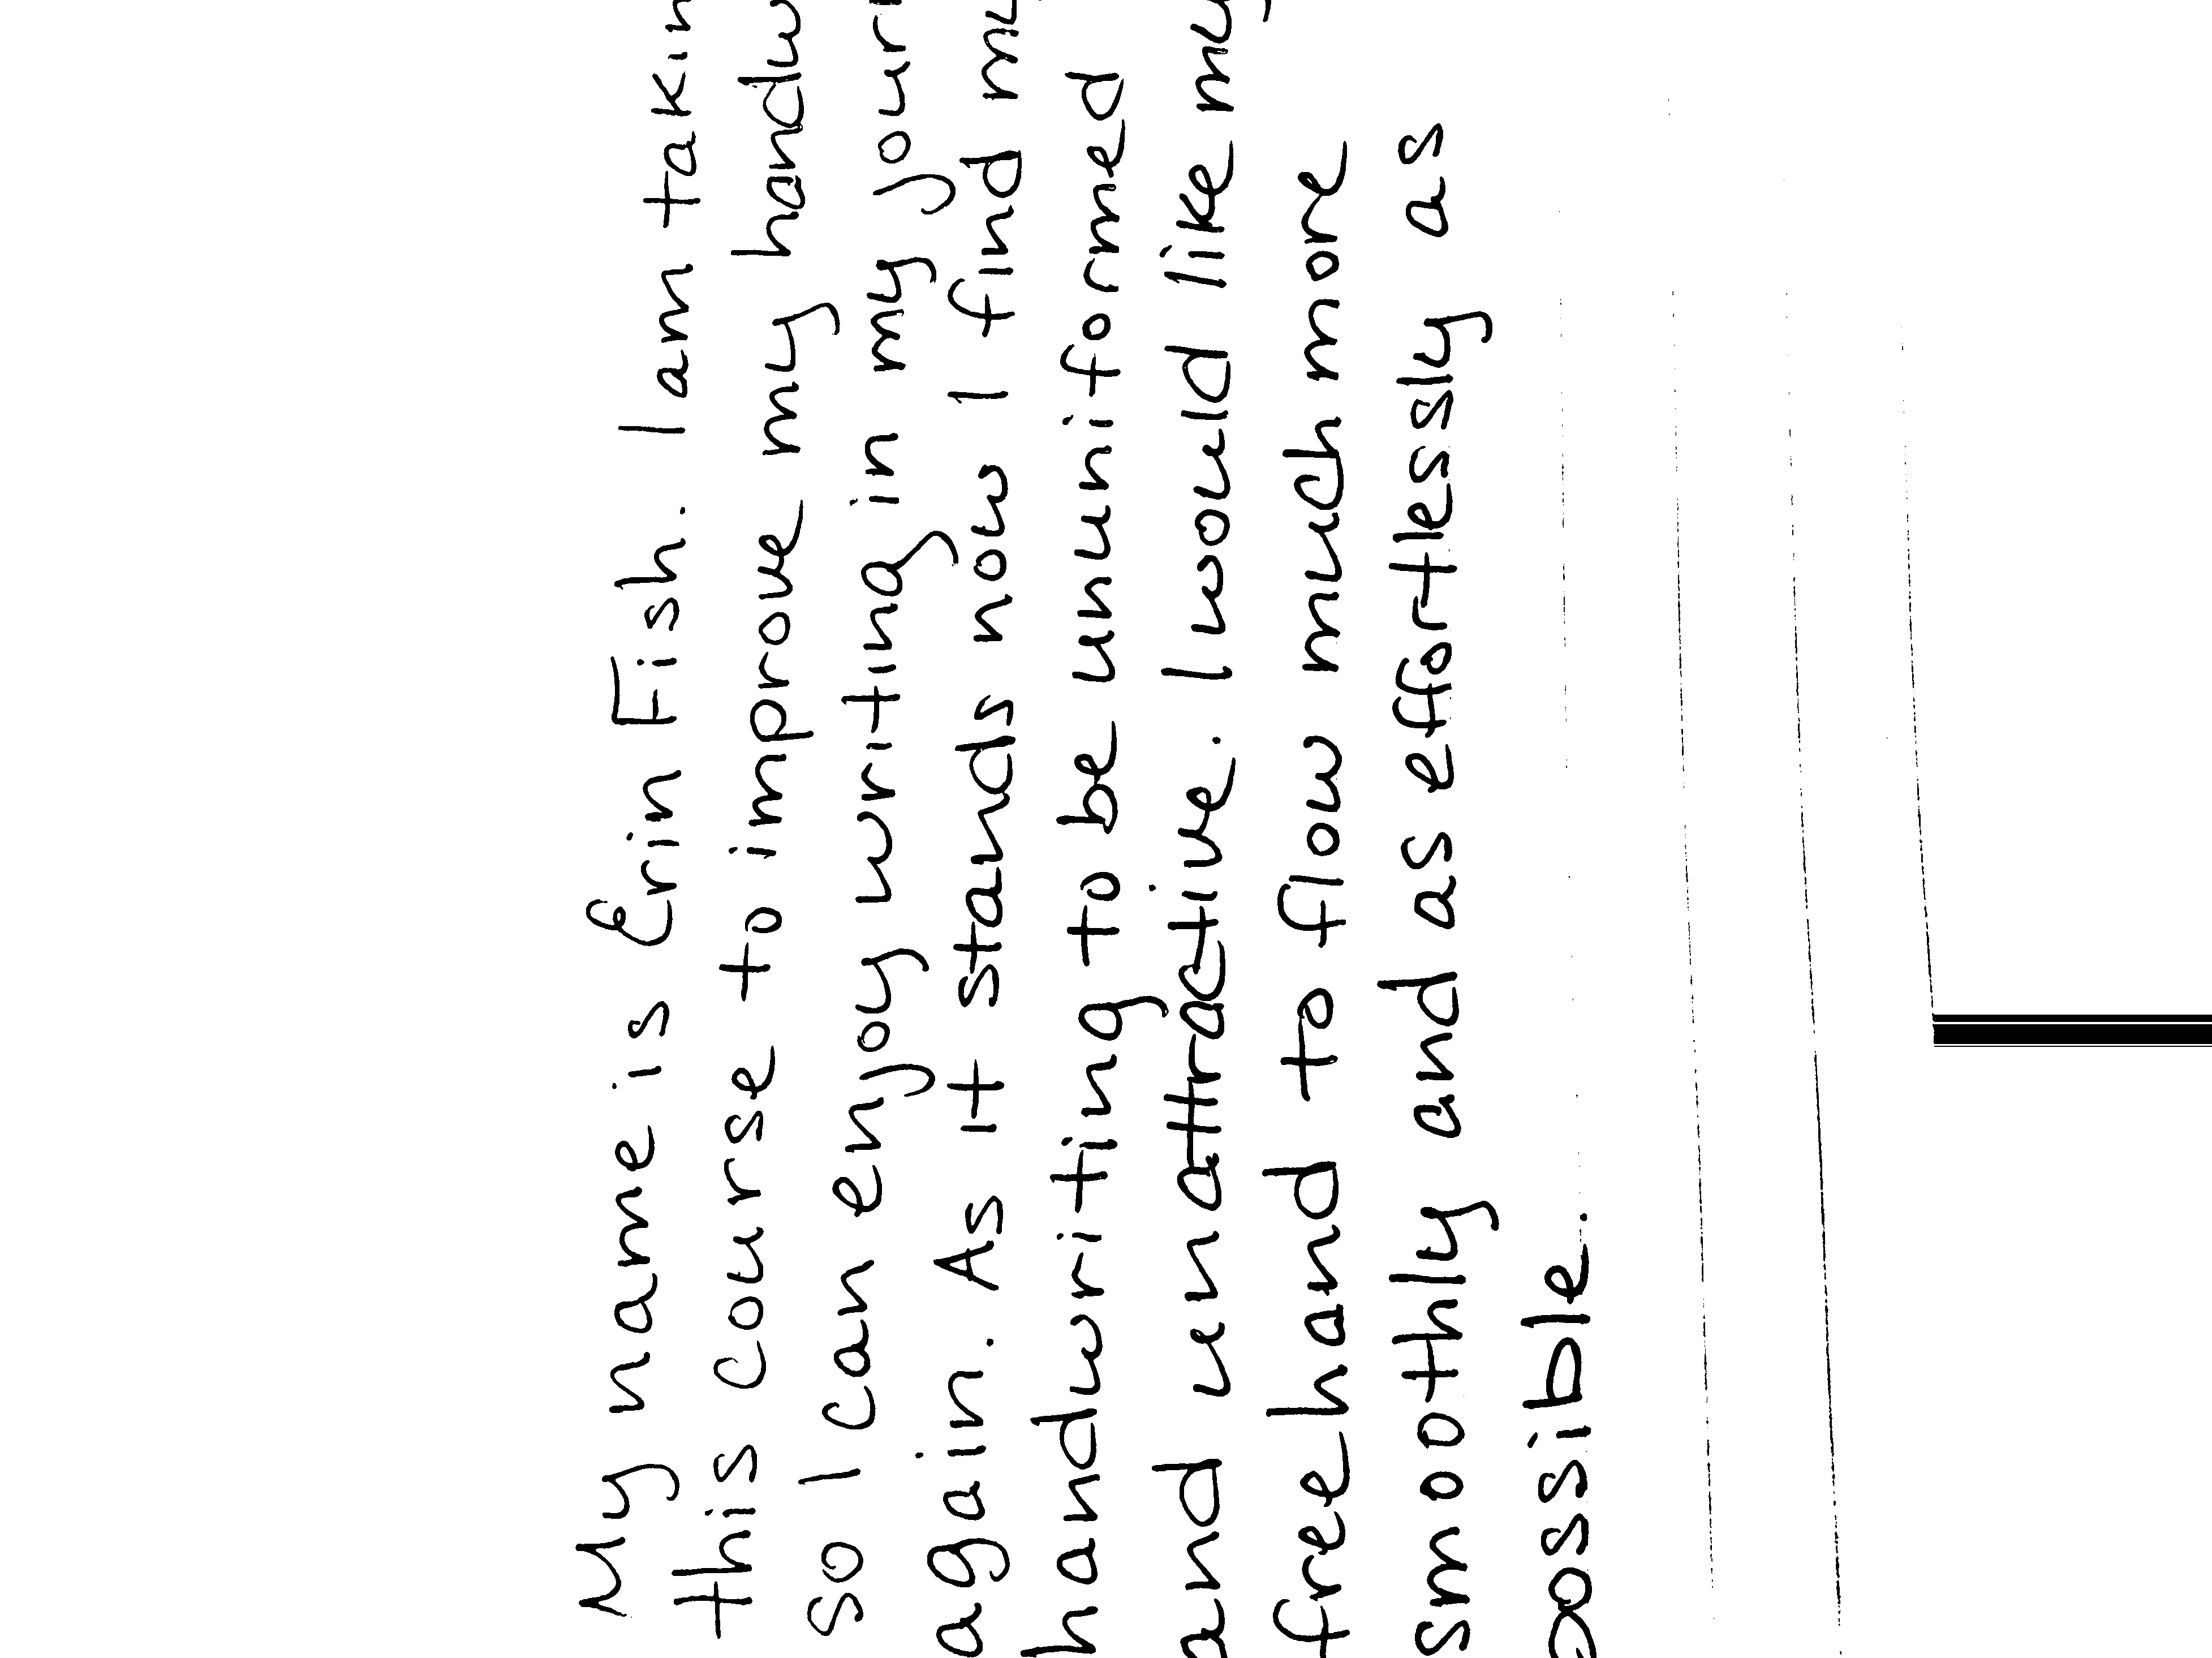 My name is Erin Fish. I am takin
this course to improve my handw
so I can enjoy writing in my journ
again. As it stands now I find my
handwriting to be ununiformed
and unattractive. I would like my
freehand to flow much more
smoothly and as effortlessly as
possible.